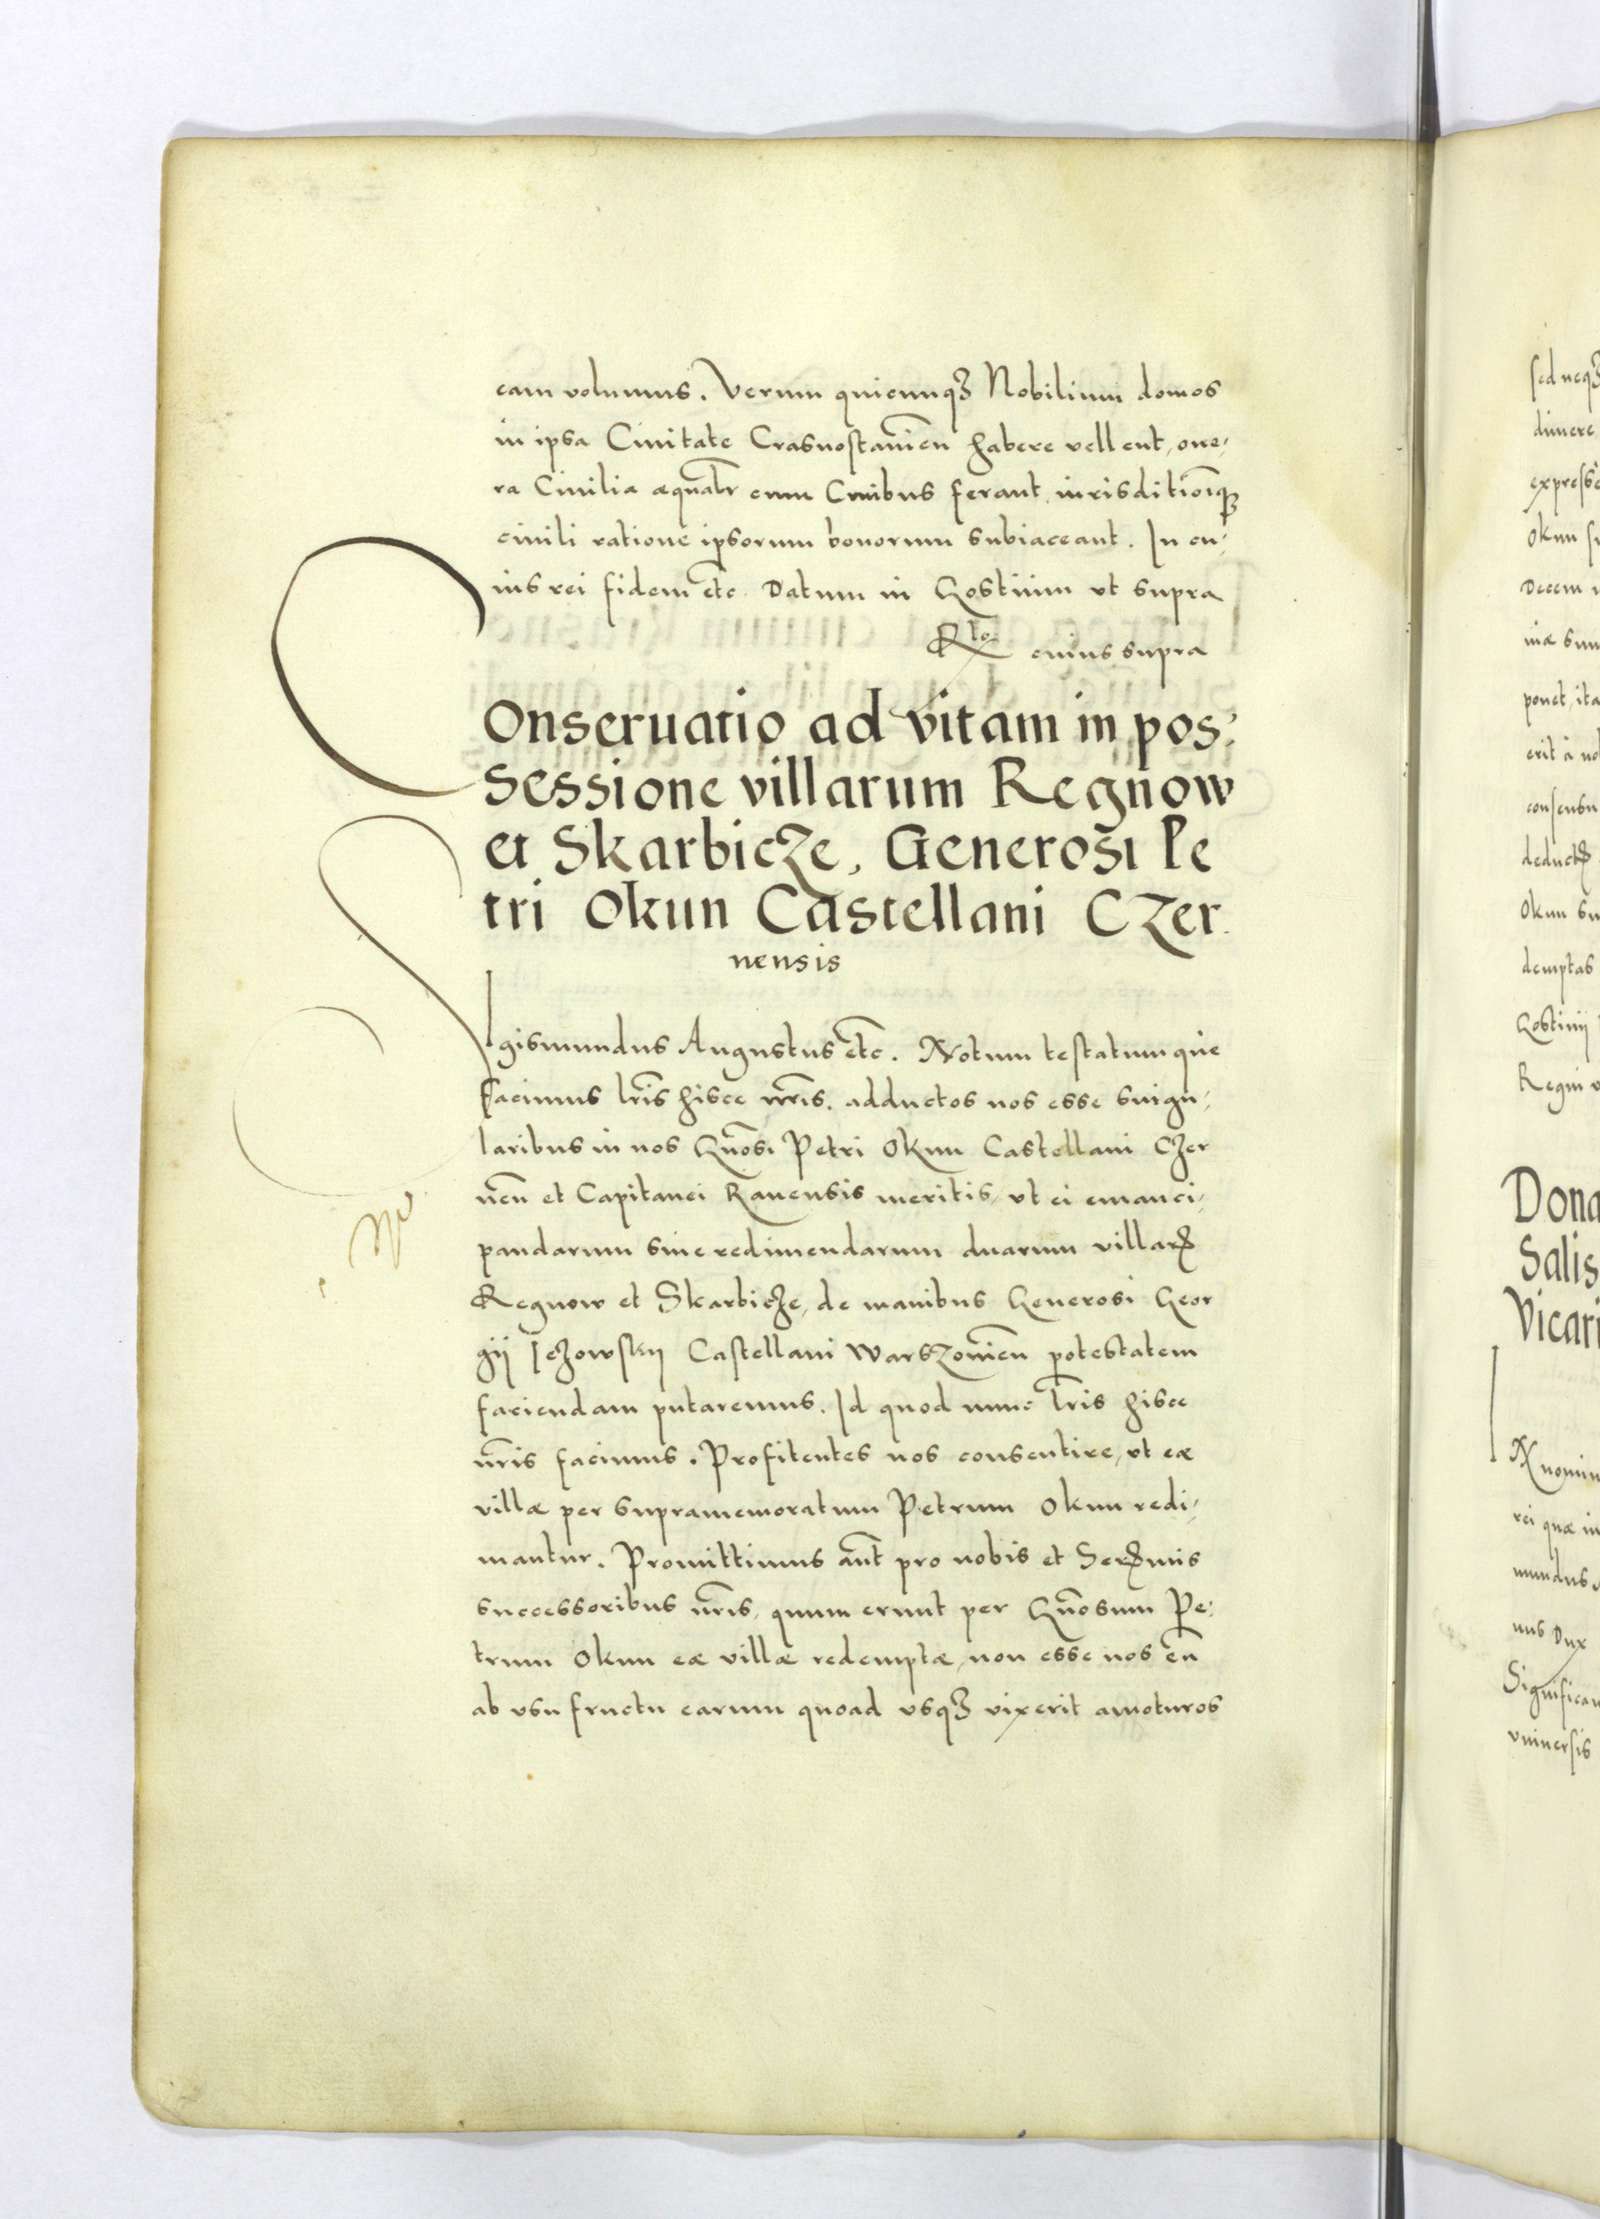 eam volumus. Verum quicunqꝫ Nobilium domos
in ipsa Ciuitate Crasnostauien̄ habere vellent, one-
ra Ciuilia æqual̄r cum Ciuibus ferant, iurisditionīqꝫ
ciuili ratione ipsorum bonorum subiaceant. In cu-
ius rei fidem etc̄. Datum in Gostinin vt supra
R^to cuius supra
Conseruatio ad vitam in pos-
sessione villarum Regnow
et Skarbicze, Generosi Pe
tri Okun Castellani Czer
nensis
Sigismundus Augustus etc̄. Notum testatumque
facimus lr̄is hisce nr̄is. adductos nos esse singu-
laribus in nos Gn̄osi Petri Okun Castellani Czer
nen̄ et Capitanei Rauensis meritis, vt ei emanci-
pandarum siue redimendarum duarum villarꝝ
Regnow et Skarbicze, de manibus Generosi Geor
gij Jezowskij Castellani Warszouien̄ potestatem
faciendam putaremus. Id quod nunc lr̄is hisce
nr̄is facimus. Profitentes nos consentire, vt eæ
villæ per supramemoratum Petrum Okun redi-
mantur. Promittimus aūt pro nobis et Serꝫmis
successoribus nr̄is, quum erunt per Gn̄osum Pe-
trum Okun eæ villæ redemptæ, non esse nos eū
ab vsu fructu earum quoad vsqꝫ vixerit amoturos
sed neqꝫ
dimere
expresse
Okun
Decem
ponet, ita
erit à no
consensu
deductꝭ
Okun su
demptas
Gostinij
Regni
Dona
Salis
Vicari
rei quæ in
mundus
nus Dux
Significam
vniuersis